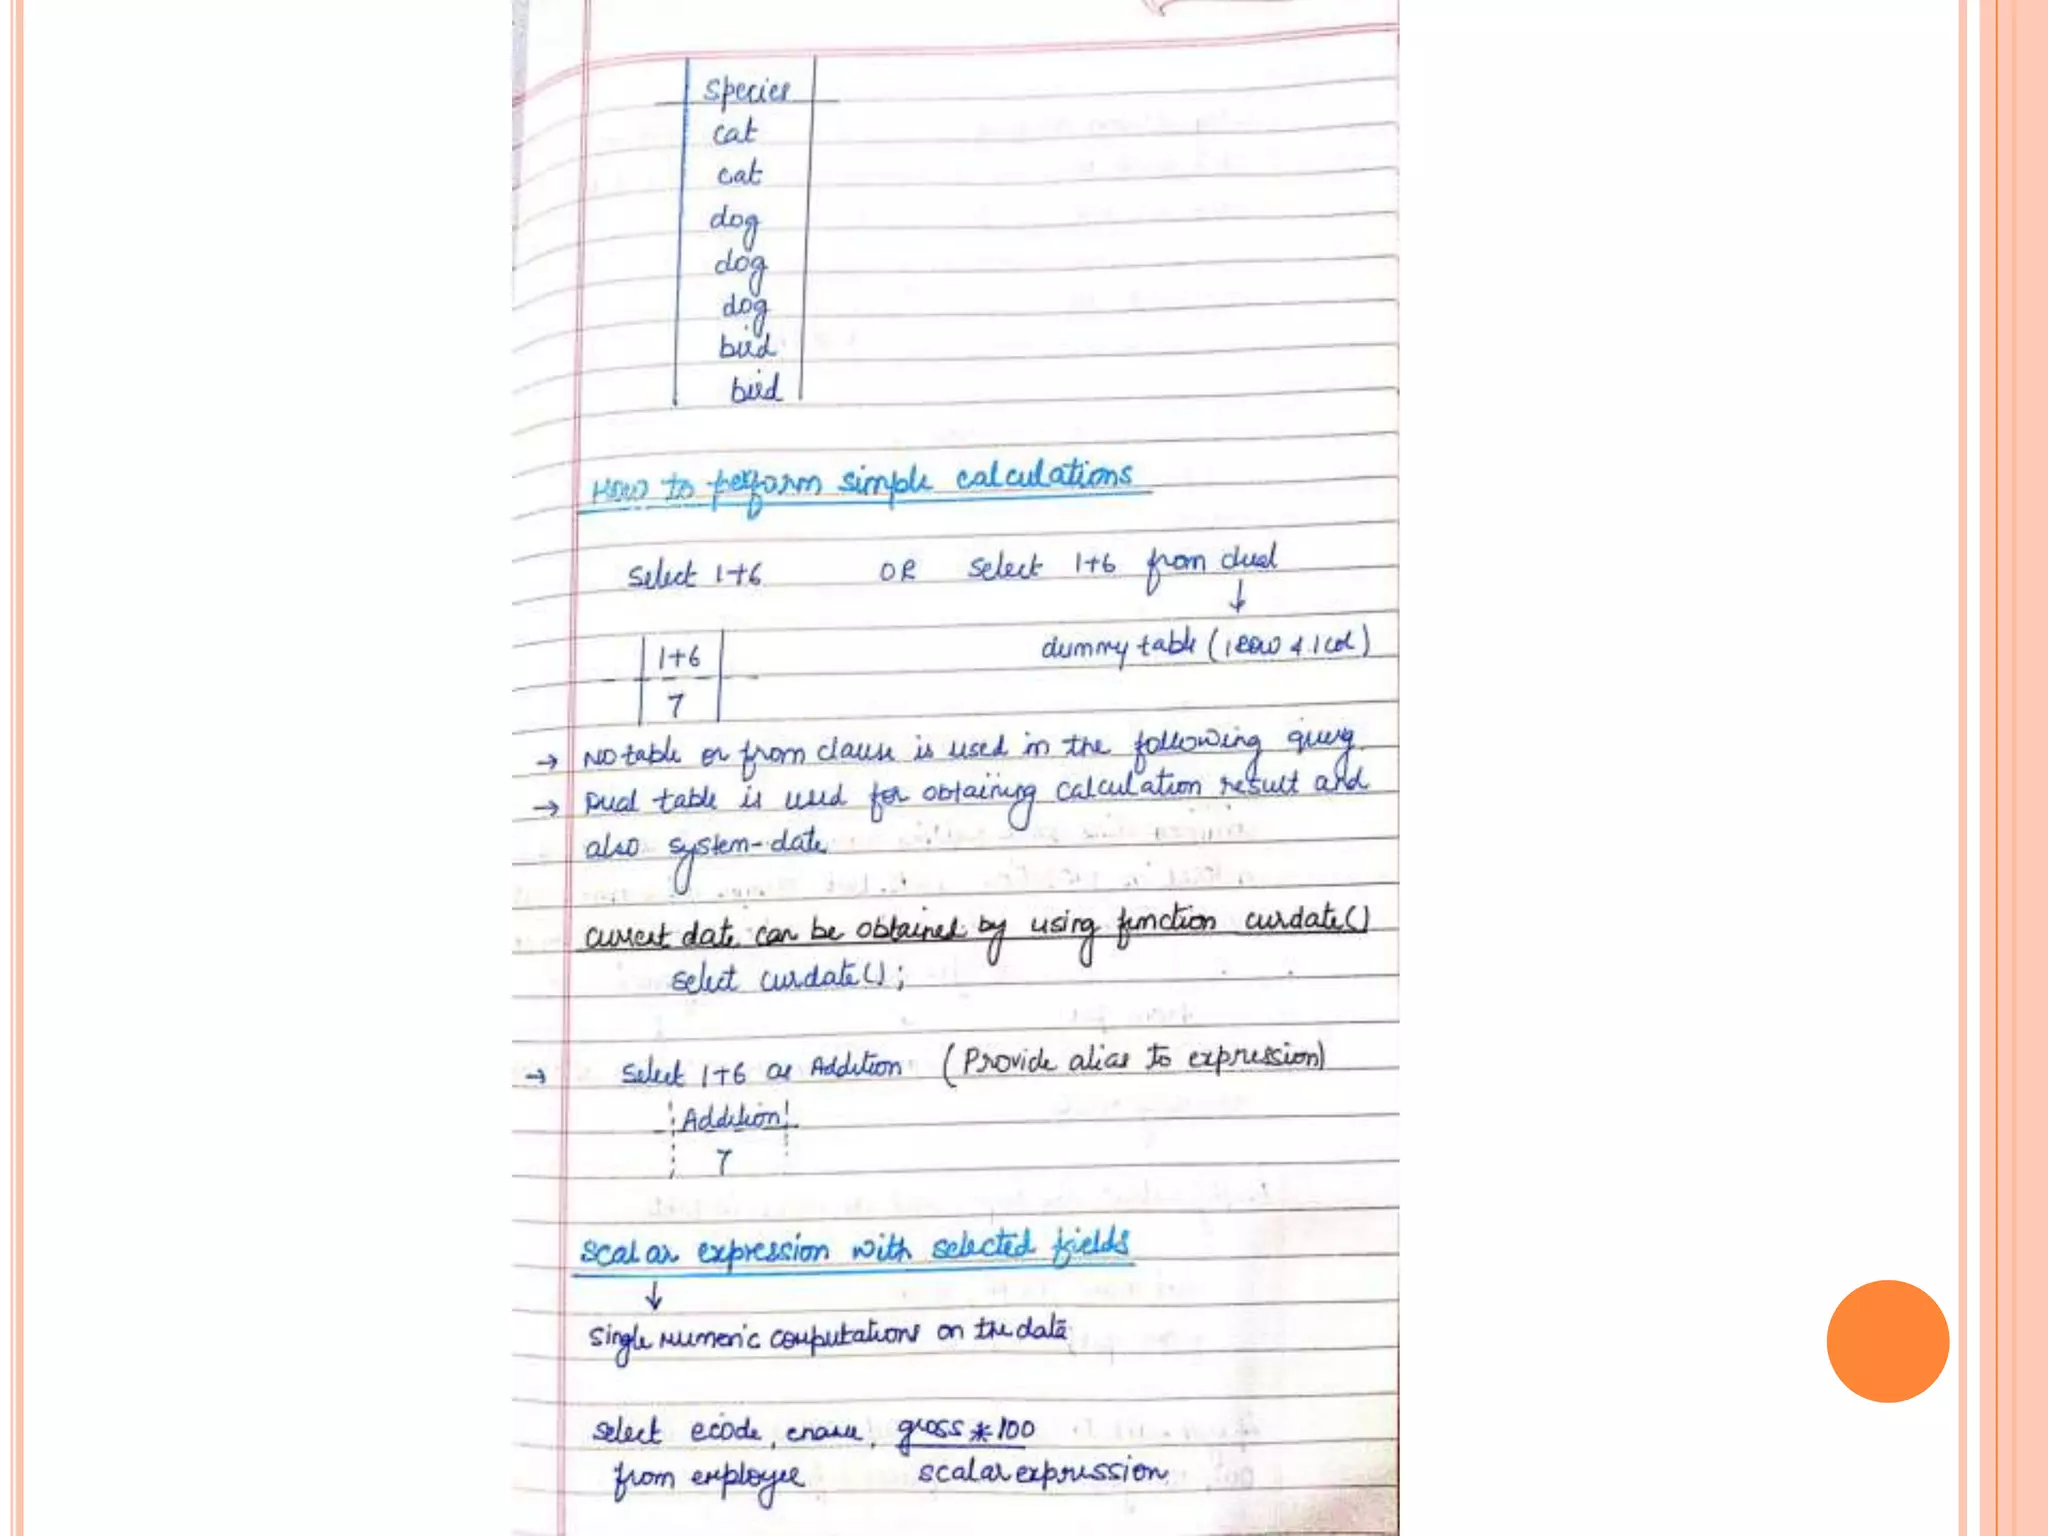 Species
cat
cat
dog
dog
dog
bird
bird
How to perform simple calculations
Select 1+6 OR Select 1+6 from dual
↓
1+6 dummy table (1 ROW & 1 col)
7
→ No table or from clause is used in the following query
→ Dual table is used for obtaining calculation result and
also system-date
current date can be obtained by using function curdate()
select curdate();
→ Select 1+6 as Addition (Provide alias to expression)
Addition
7
Scalar expression with selected fields
↓
Single Numeric computations on the data
select ecode, ename, gross * 100
from employee scalar expression